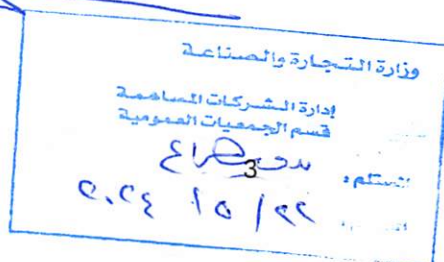 وزارة التجارة والصناعة
إدارة الشركات المساهمة
قسم الجمعيات العمومية
المستلم :
3
٢٢ / ٥ / ٢٠٢٤